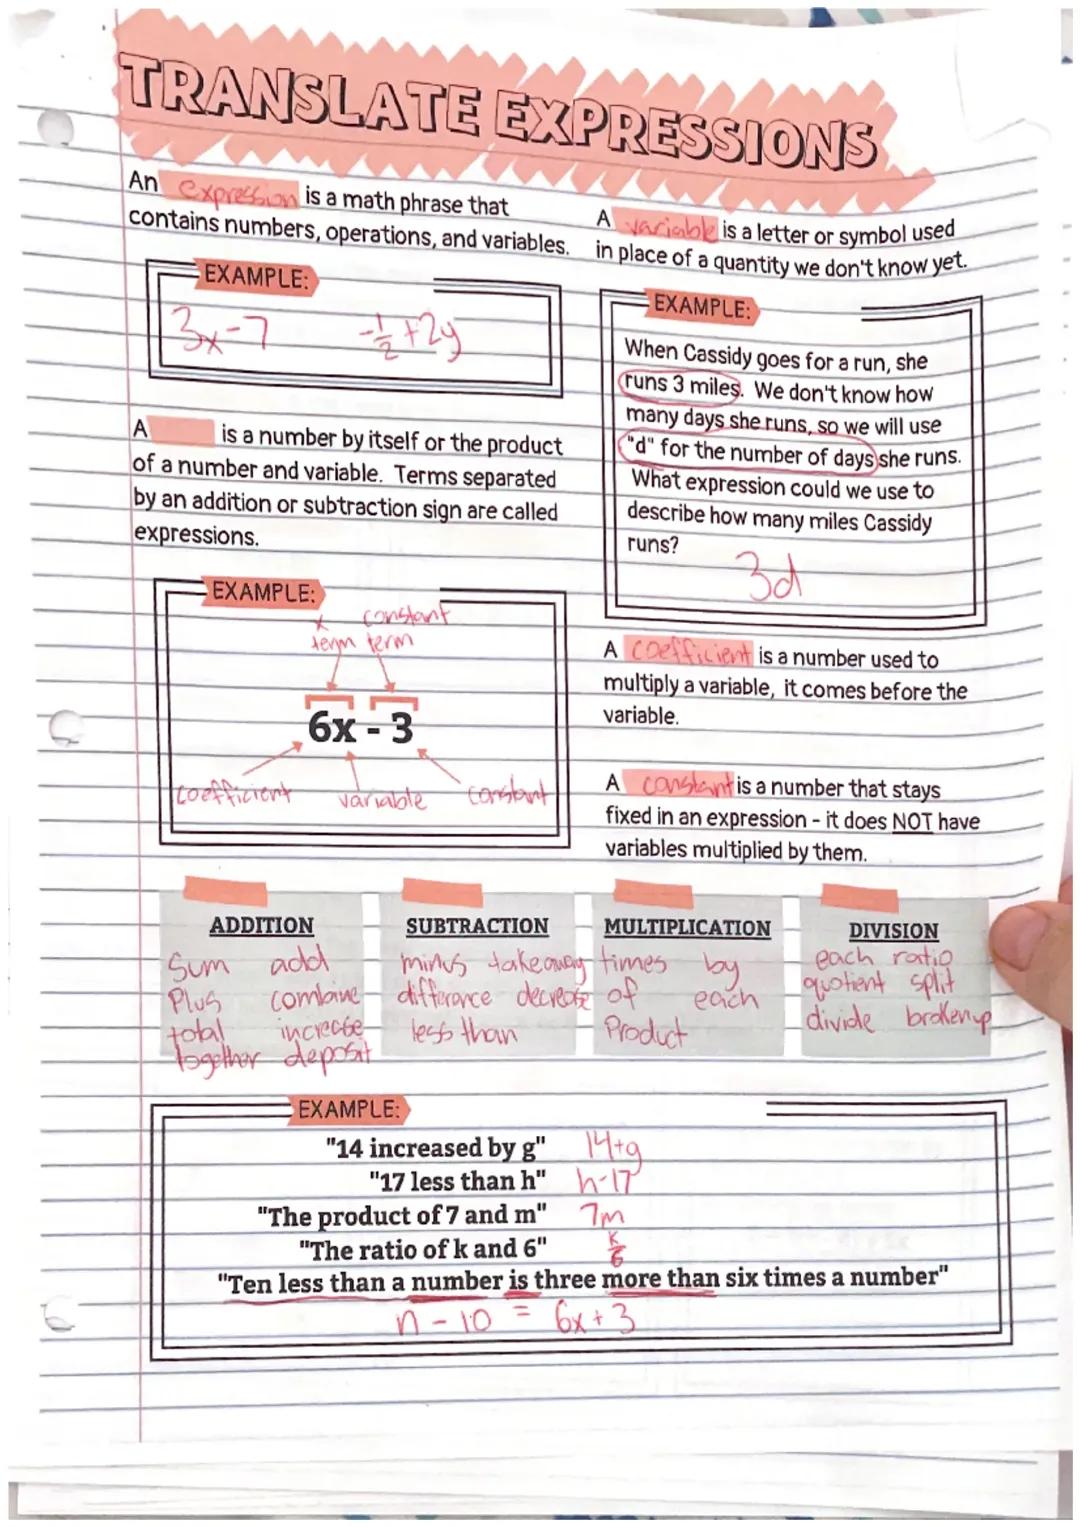 TRANSLATE EXPRESSIONS
An expression is a math phrase that
contains numbers, operations, and variables.
EXAMPLE:
3x-7 -1/2+2y
A is a number by itself or the product
of a number and variable. Terms separated
by an addition or subtraction sign are called
expressions.
EXAMPLE:
x constant
term term
6x - 3
coefficient variable constant
A variable is a letter or symbol used
in place of a quantity we don't know yet.
EXAMPLE:
When Cassidy goes for a run, she
runs 3 miles. We don't know how
many days she runs, so we will use
"d" for the number of days she runs.
What expression could we use to
describe how many miles Cassidy
runs?
3d
A coefficient is a number used to
multiply a variable, it comes before the
variable.
A constant is a number that stays
fixed in an expression - it does NOT have
variables multiplied by them.
ADDITION
Sum add
Plus combine
total increase
Together deposit
SUBTRACTION
minus takeaway
difference decrease
less than
MULTIPLICATION
times by
of each
Product
DIVISION
each ratio
quotient split
divide broken up
EXAMPLE:
"14 increased by g" 14+g
"17 less than h" h-17
"The product of 7 and m" 7m
"The ratio of k and 6" k/6
"Ten less than a number is three more than six times a number"
n - 10 = 6x + 3